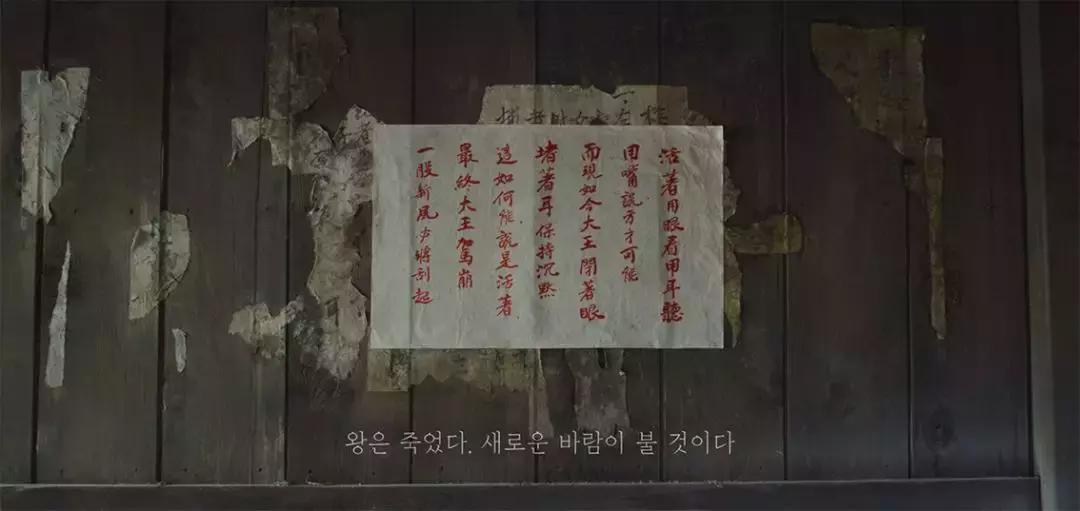 活著用眼看用耳聽
用嘴說方才可能
而現如今大王閉著眼
堵著耳保持沉默
這如何能說是活著
最終大王駕崩
一股新風必將刮起
왕은 죽었다. 새로운 바람이 불 것이다